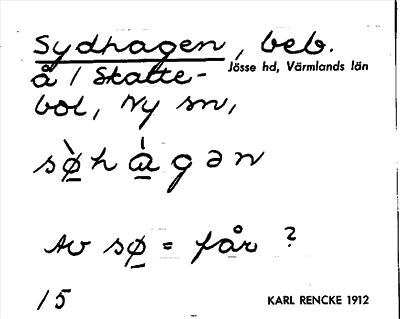 Sydhagen, beb.
Jösse hd, Värmlands län
å / Skatte-
bol, Ny sn,
sø̠̀hà̠gən
Av sø̠ = får ?
15
KARL RENCKE 1912